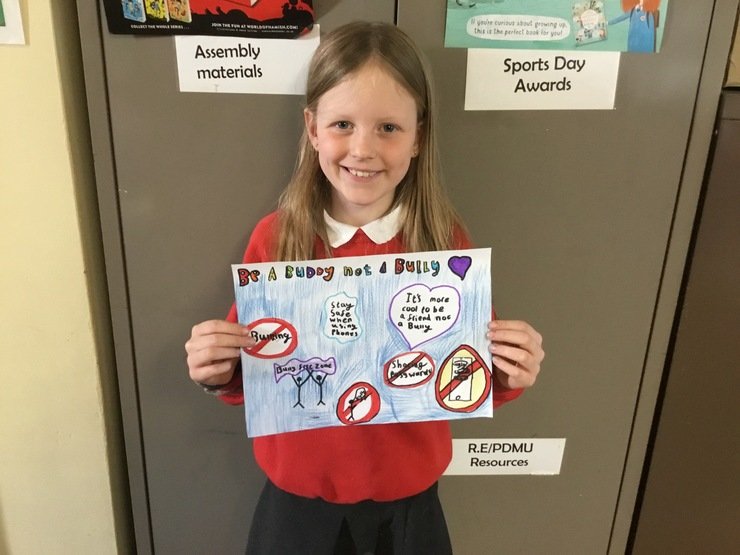 COLLECT THE WHOLE SERIES
JOIN THE FUN AT WORLDOFHAMISH.COM!
If you're curious about growing up,
this is the perfect book for you!
Assembly
materials
Sports Day
Awards
Be A BUDDy not A Bully
Stay
Safe
when
using
Phones
It's more
cool to be
a friend not
a Bully
Bullying
Bully free Zone
Sharing
Passwords
R.E/PDMU
Resources